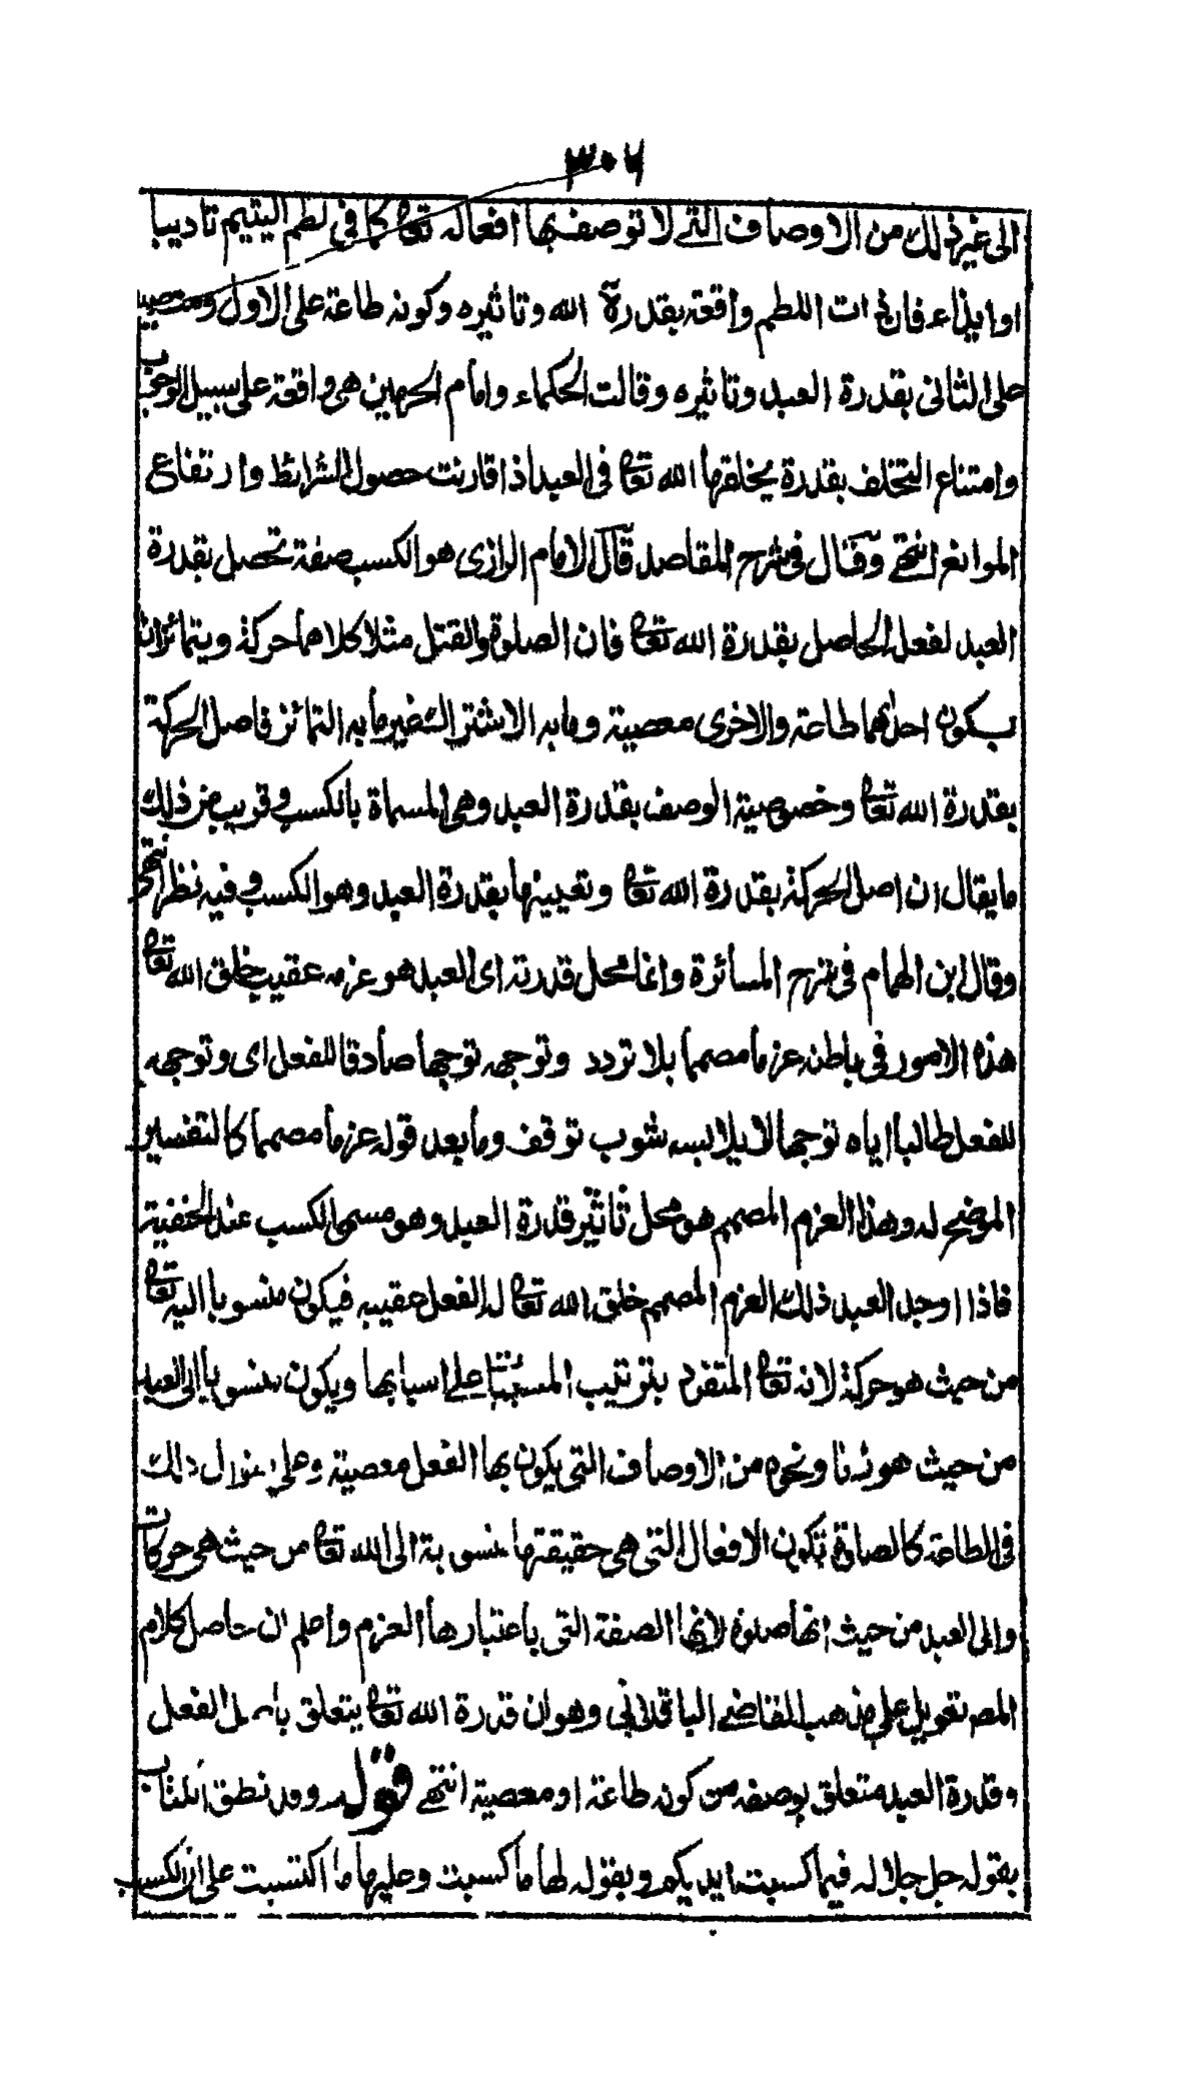 ٣٠٦
الى غير ذلك من الاوصاف التے لا توصف بها افعاله تعا كما فى لطم اليتيم تاديبا
او ايذاء فان ذات اللطم واقعة بقدرة الله وتاثيره وكونه طاعة على الاول ومعصية
على الثانى بقدرة العبد وتاثيره وقالت الحكماء وامام الحرمين هى واقعة على سبيل الوجوب
وامتناع التخلف بقدرة يخلقها الله تعا فى العبد اذا قارنت حصول الشرائط وارتفاع
الموانع انتهے وقال فى شرح المقاصد قال الامام الرازى هو الكسب صفة تحصل بقدرة
العبد لفعل الحاصل بقدرة الله تعا فان الصلوة والقتل مثلا كلاهما حركة ويتمائزان
بكون احدٰهما طاعة والاخرى معصية وما به الاشتراك غير ما به التمائز فاصل الحركة
بقدرة الله تعا وخصوصية الوصف بقدرة العبد وهى المسماة بالكسب وقريب من ذلك
ما يقال ان اصل الحركة بقدرة الله تعا وتعيينها بقدرة العبد وهو الكسب وفيه نظر انتهى
وقال ابن الهمام فى شرح المسائرة وانما محل قدرته اى العبد هو عزمه عقيب خلق الله تعا
هذه الامور فى باطنه عزما مصمما بلا تردد وتوجهه توجها صادقا للفعل اى وتوجهه
للفعل طالبا اياه توجها لا يلابسه شوب توقف وما بعد قوله عزما مصمما كالتفسير
الموضح له وهذا العزم المصمم هو محل تاثير قدرة العبد وهو مسمى الكسب عند الحنفية
فاذا اوجد العبد ذلك العزم المصمم خلق الله تعا له الفعل عقيبه فيكون منسوبا اليه تعا
من حيث هو حركة لانه تعا المتفرد بترتيب المسببات على اسبابها ويكون منسوبا الى العبد
من حيث هو زنا ونحوه من الاوصاف التى يكون بها الفعل معصية وعلى منوال ذلك
فى الطاعة كالصلوة تكون الافعال التى هى حقيقتها منسوبة الى الله تعا من حيث هى حركات
والى العبد من حيث انها صلوة لانها الصفة التى باعتبارها العزم واعلم ان حاصل كلام
المصـ تعويل على مذهب القاضے الباقلانى وهو ان قدرة الله تعا يتعلق باصل الفعل
وقدرة العبد متعلق بوصفه من كونه طاعة او معصية انتهے قوله وقد نطق الكتاب
بقوله جل جلاله فيما كسبت ايديكم وبقوله لها ما كسبت وعليها ما اكتسبت على ان الكسب